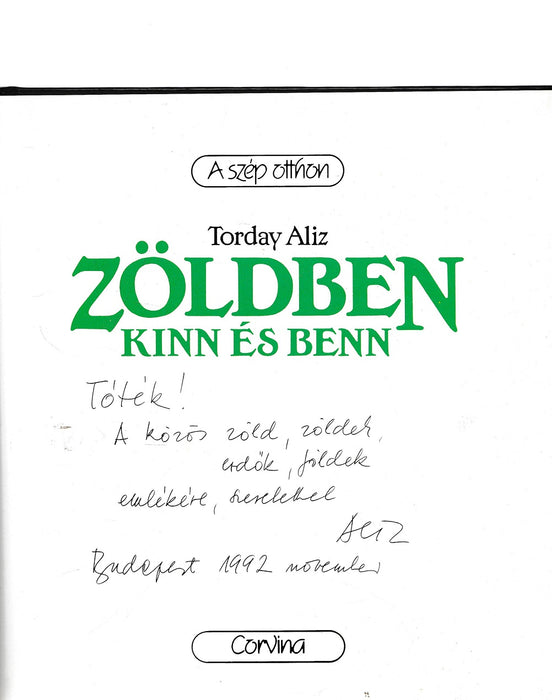 A szép otthon
Torday Aliz
ZÖLDBEN
KINN ÉS BENN
Tóték!
A közös zöld, zöldek,
erdők, földek
emlékére, szeretettel
Aliz
Budapest 1992 november
Corvina